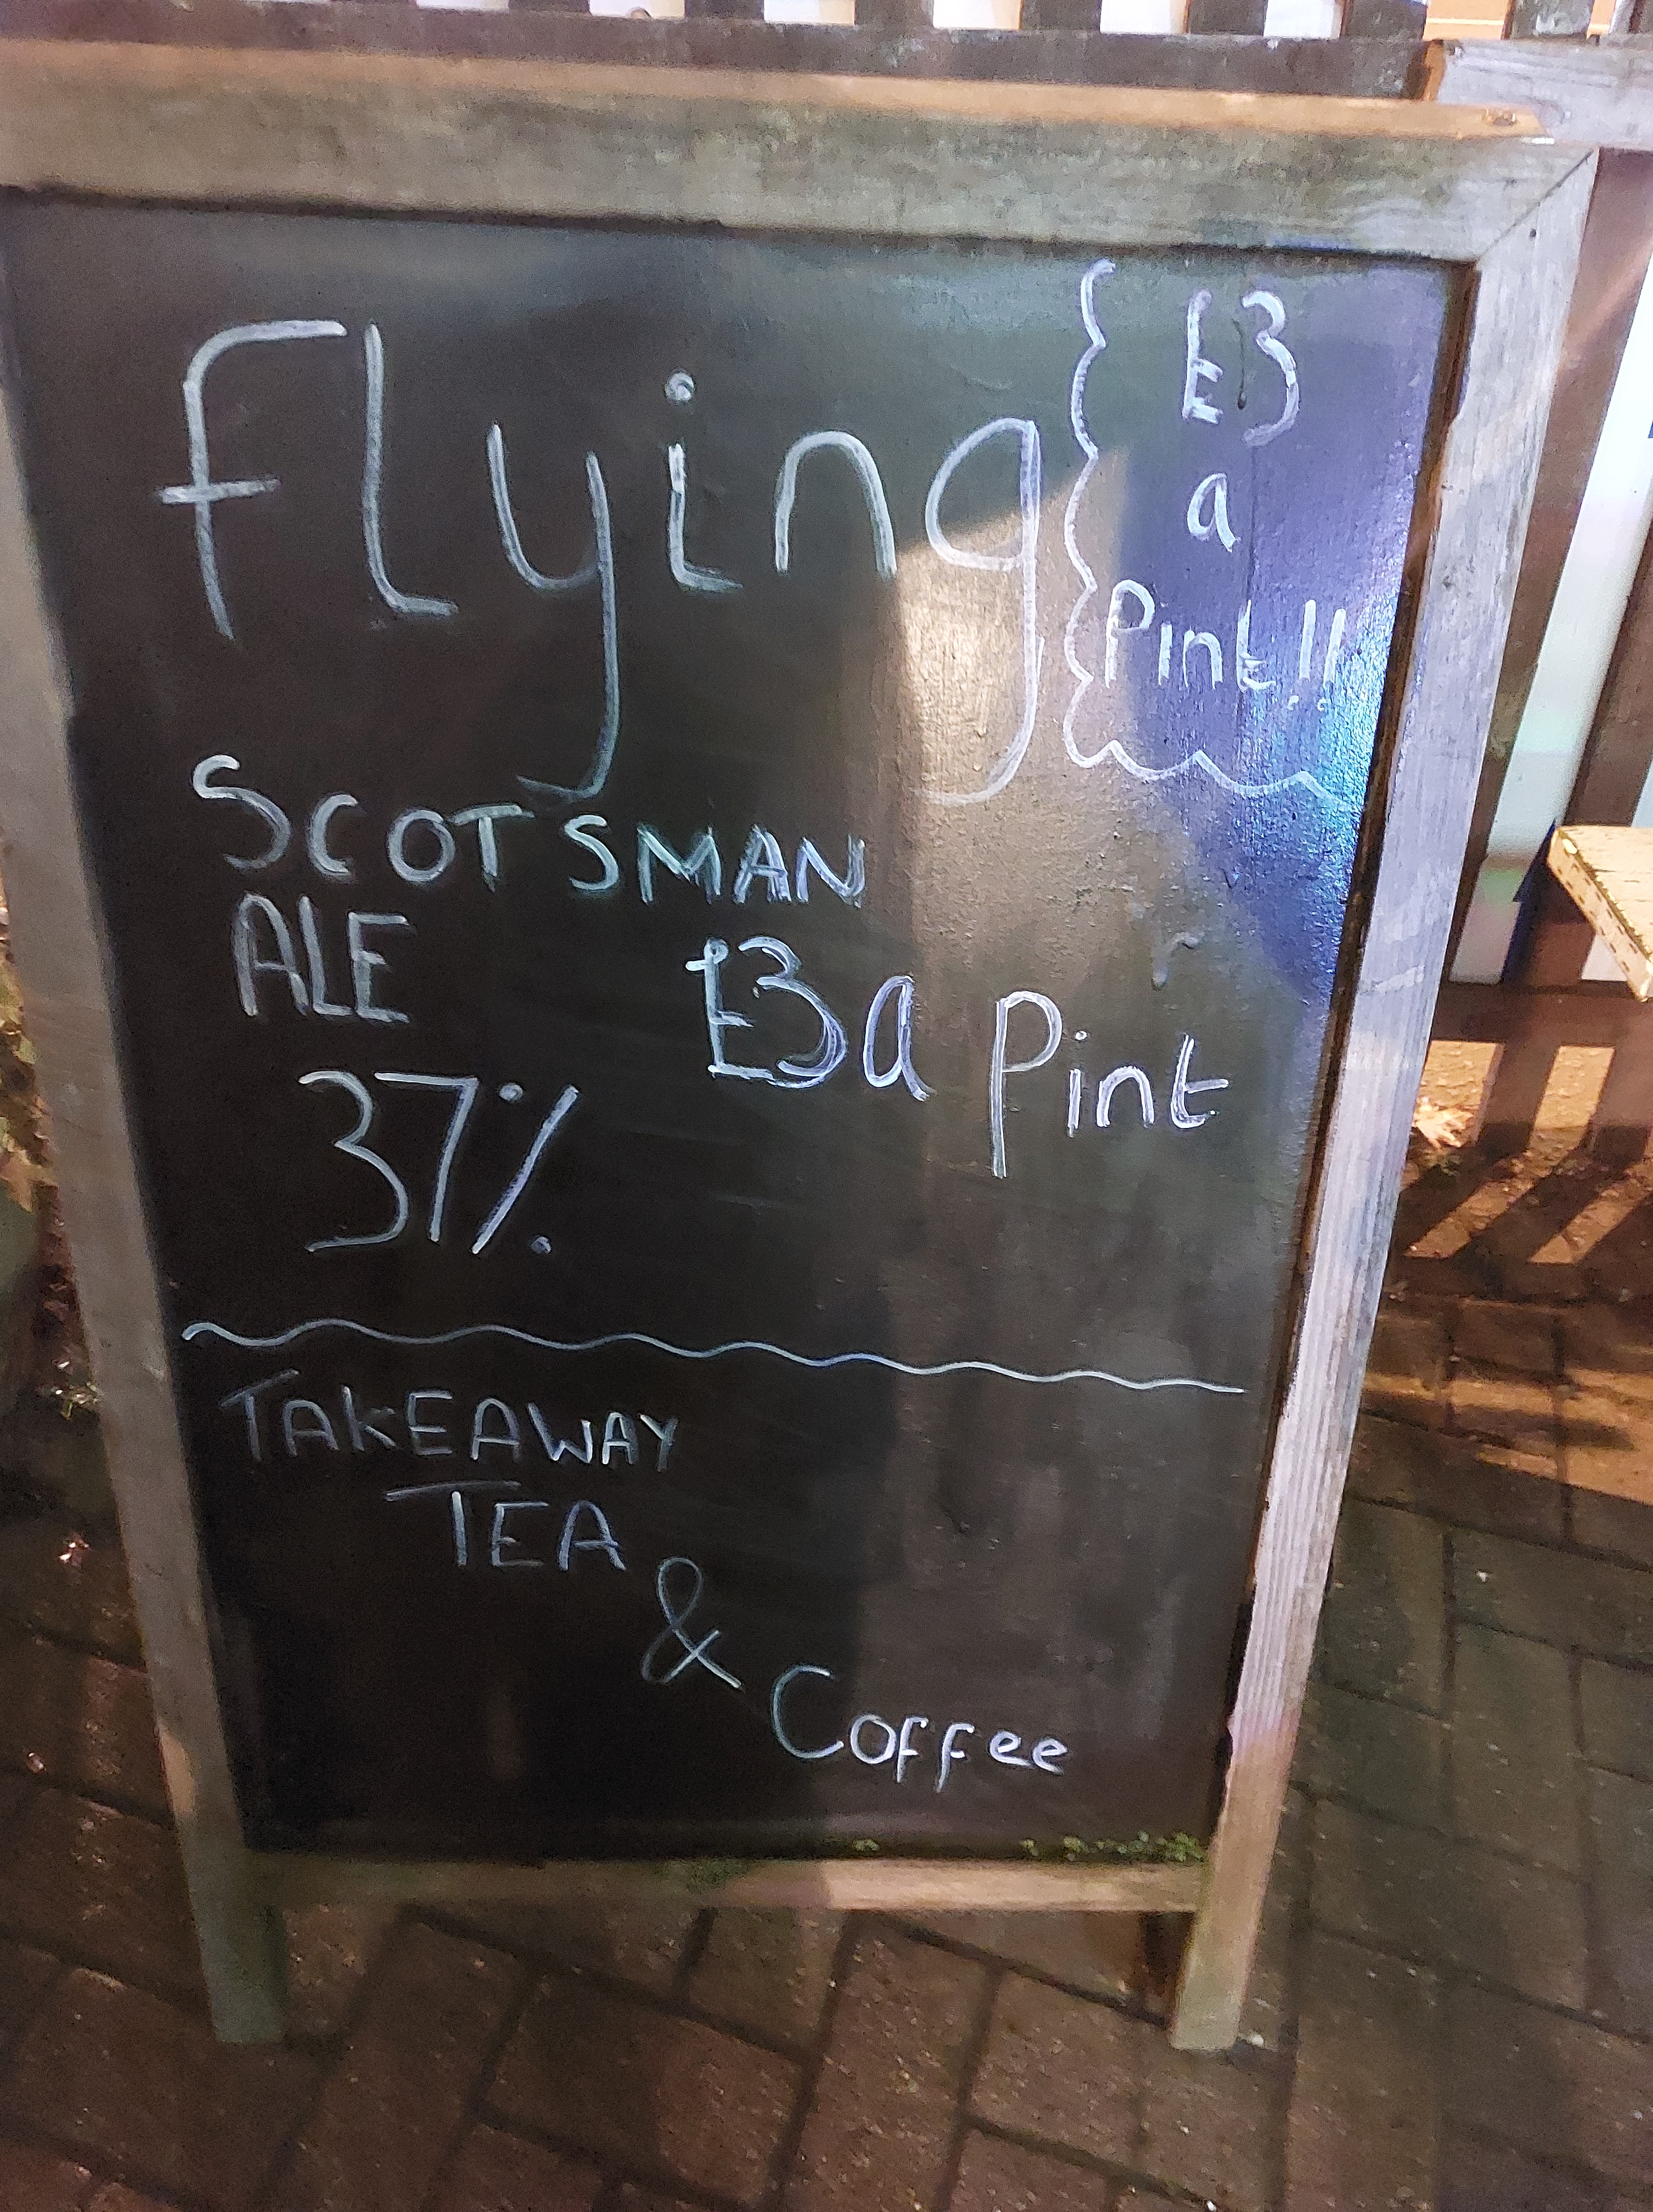 Flying
£3
a
Pint!!
SCOTSMAN
ALE
£3 a Pint
37%
TAKEAWAY
TEA
&
Coffee